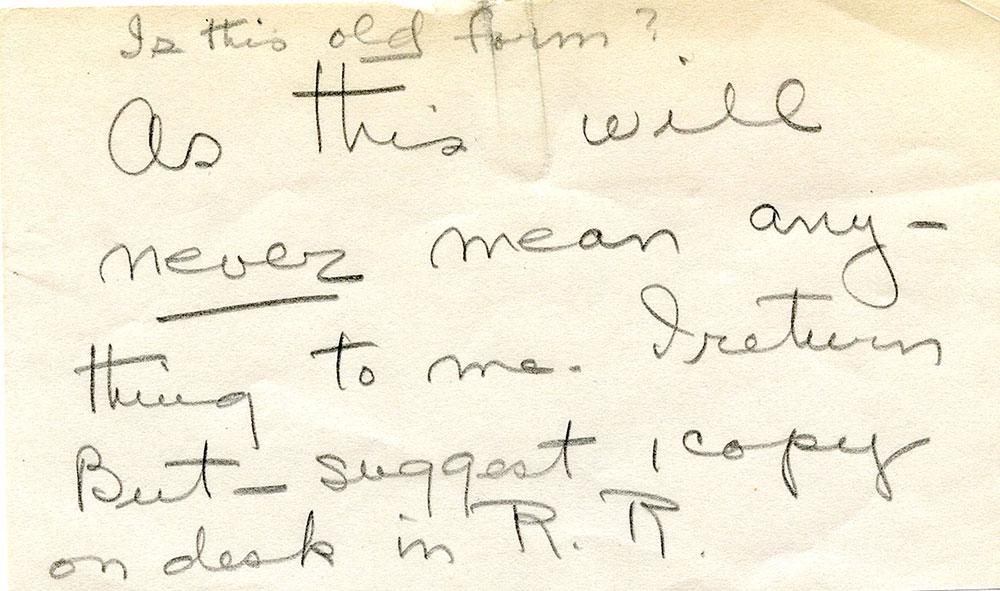 Is this old form?
As this will
never mean any-
thing to me. I return
But – suggest 1 copy
on desk in R. R.